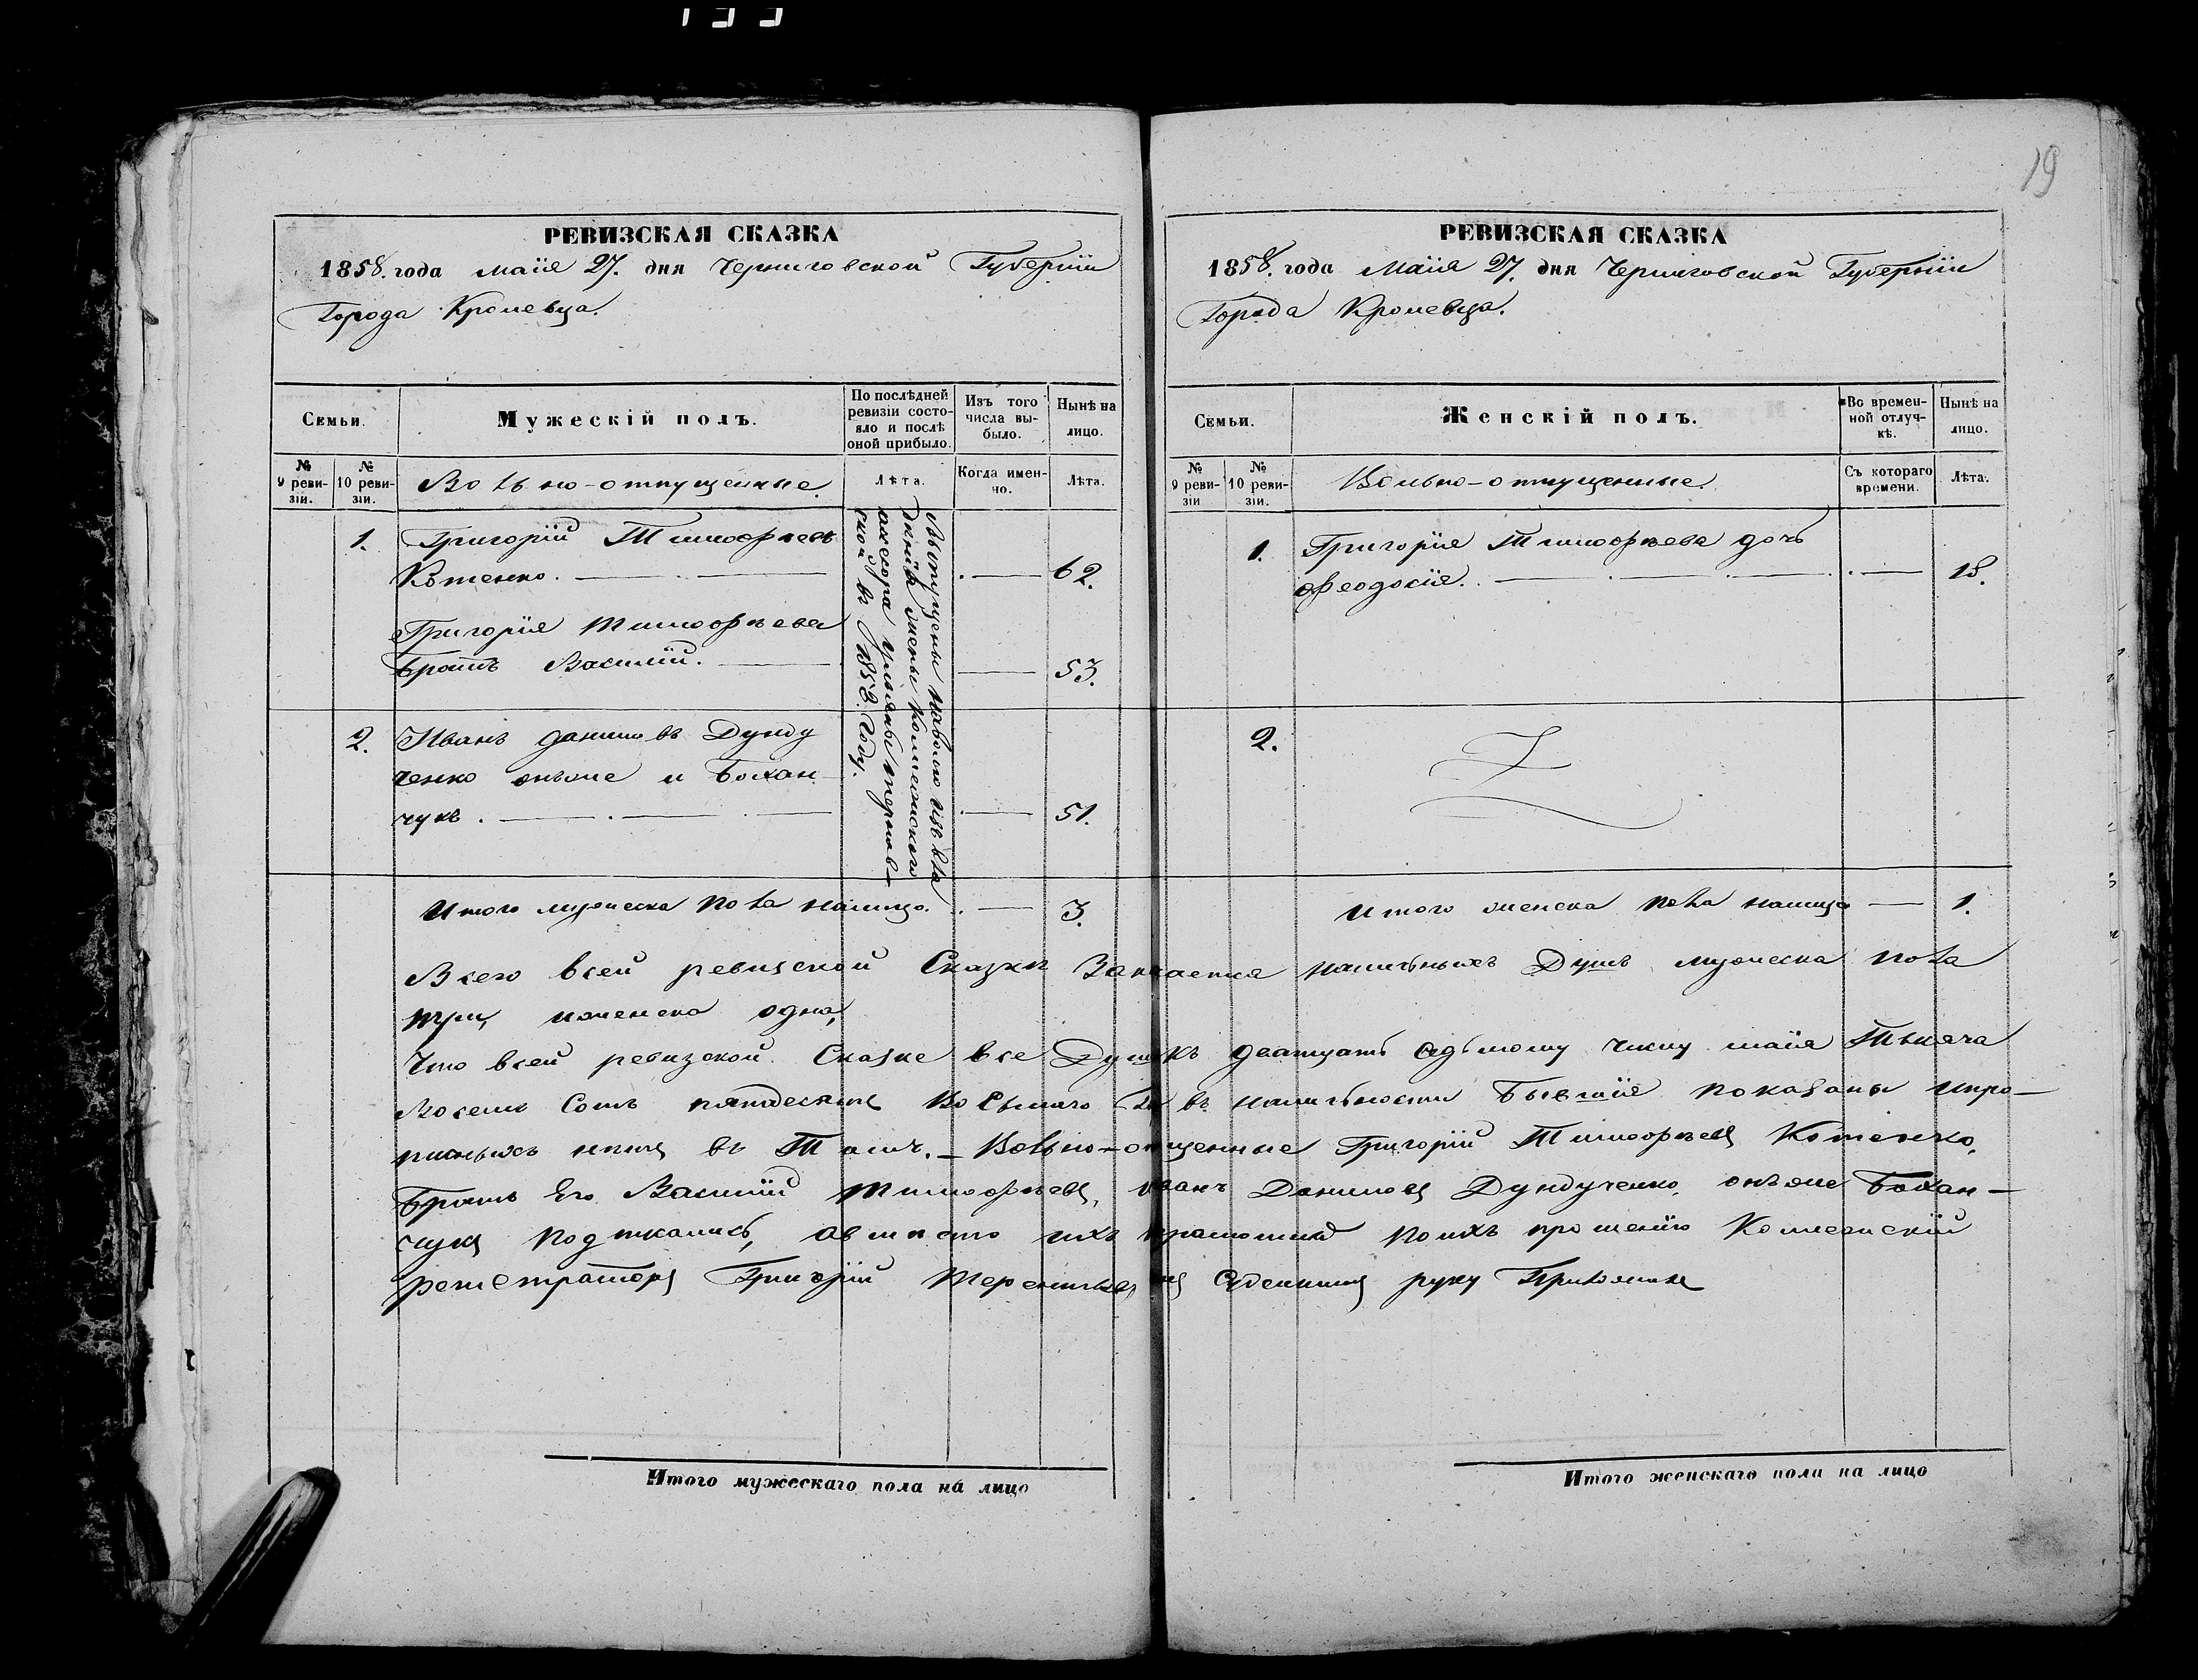 19
РЕВИЗСКАЯ СКАЗКА
1858. года маія 27. дня Черниговской Губерніи
Города Кролевца.
Семьи.
Мужескій полъ.
По послѣдней ревизіи состояло и послѣ оной прибыло.
Изъ того числа выбыло.
Нынѣ на лицо.
№ 9 ревизіи.
№ 10 ревизіи.
Вольно-отпущенные.
Лѣта.
Когда именно.
Лѣта.
1. Григорій Тимофѣевъ
Котенко. 62.
Григорія Тимофѣева
братъ Василій. 53.
2. Иванъ Даниловъ Дунду
ченко онъже и Бохан
чукъ. 51.
Отпущены наволю изъ вла
дѣнія жены Коллежского
асесора Ульяны
ской въ году.
Итого мужеска пола налицо. 3.
РЕВИЗСКАЯ СКАЗКА
1858. года Маія 27. дня Черниговской Губерніи
Города Кролевца.
Семьи.
Женскій полъ.
Во временной отлучкѣ.
Нынѣ на лицо.
№ 9 ревизіи
№ 10 ревизіи.
Вольно-отпущенные.
Съ котораго времени.
Лѣта.
1. Григорія Тимофѣева дочь
Феодосія. 18.
2.
Итого женска пола налицо 1.
Всего всей ревизской Сказкѣ наличныхъ Душъ мужеска пола
три, иженска одна,
Что всей ревизской Сказке все Души къ дватцать седьмому числу маія Тысяча
Восемь Сотъ пятдесятъ Восьмаго въ наличности бывшіе показаны ипро
писныхъ нѣтъ въ Томъ. Вольно-отпущенные Григорій Тимофѣевъ Котенко,
братъ Его Василій Тимофѣевъ, Иванъ Даниловъ Дундученко, онъже Бохан
чукъ, авмѣсто ихъ поихъ прошенію Коллежскій
регистраторъ Григорій руку Приложилъ
Итого мужескаго пола на лицо
Итого женскаго пола на лицо